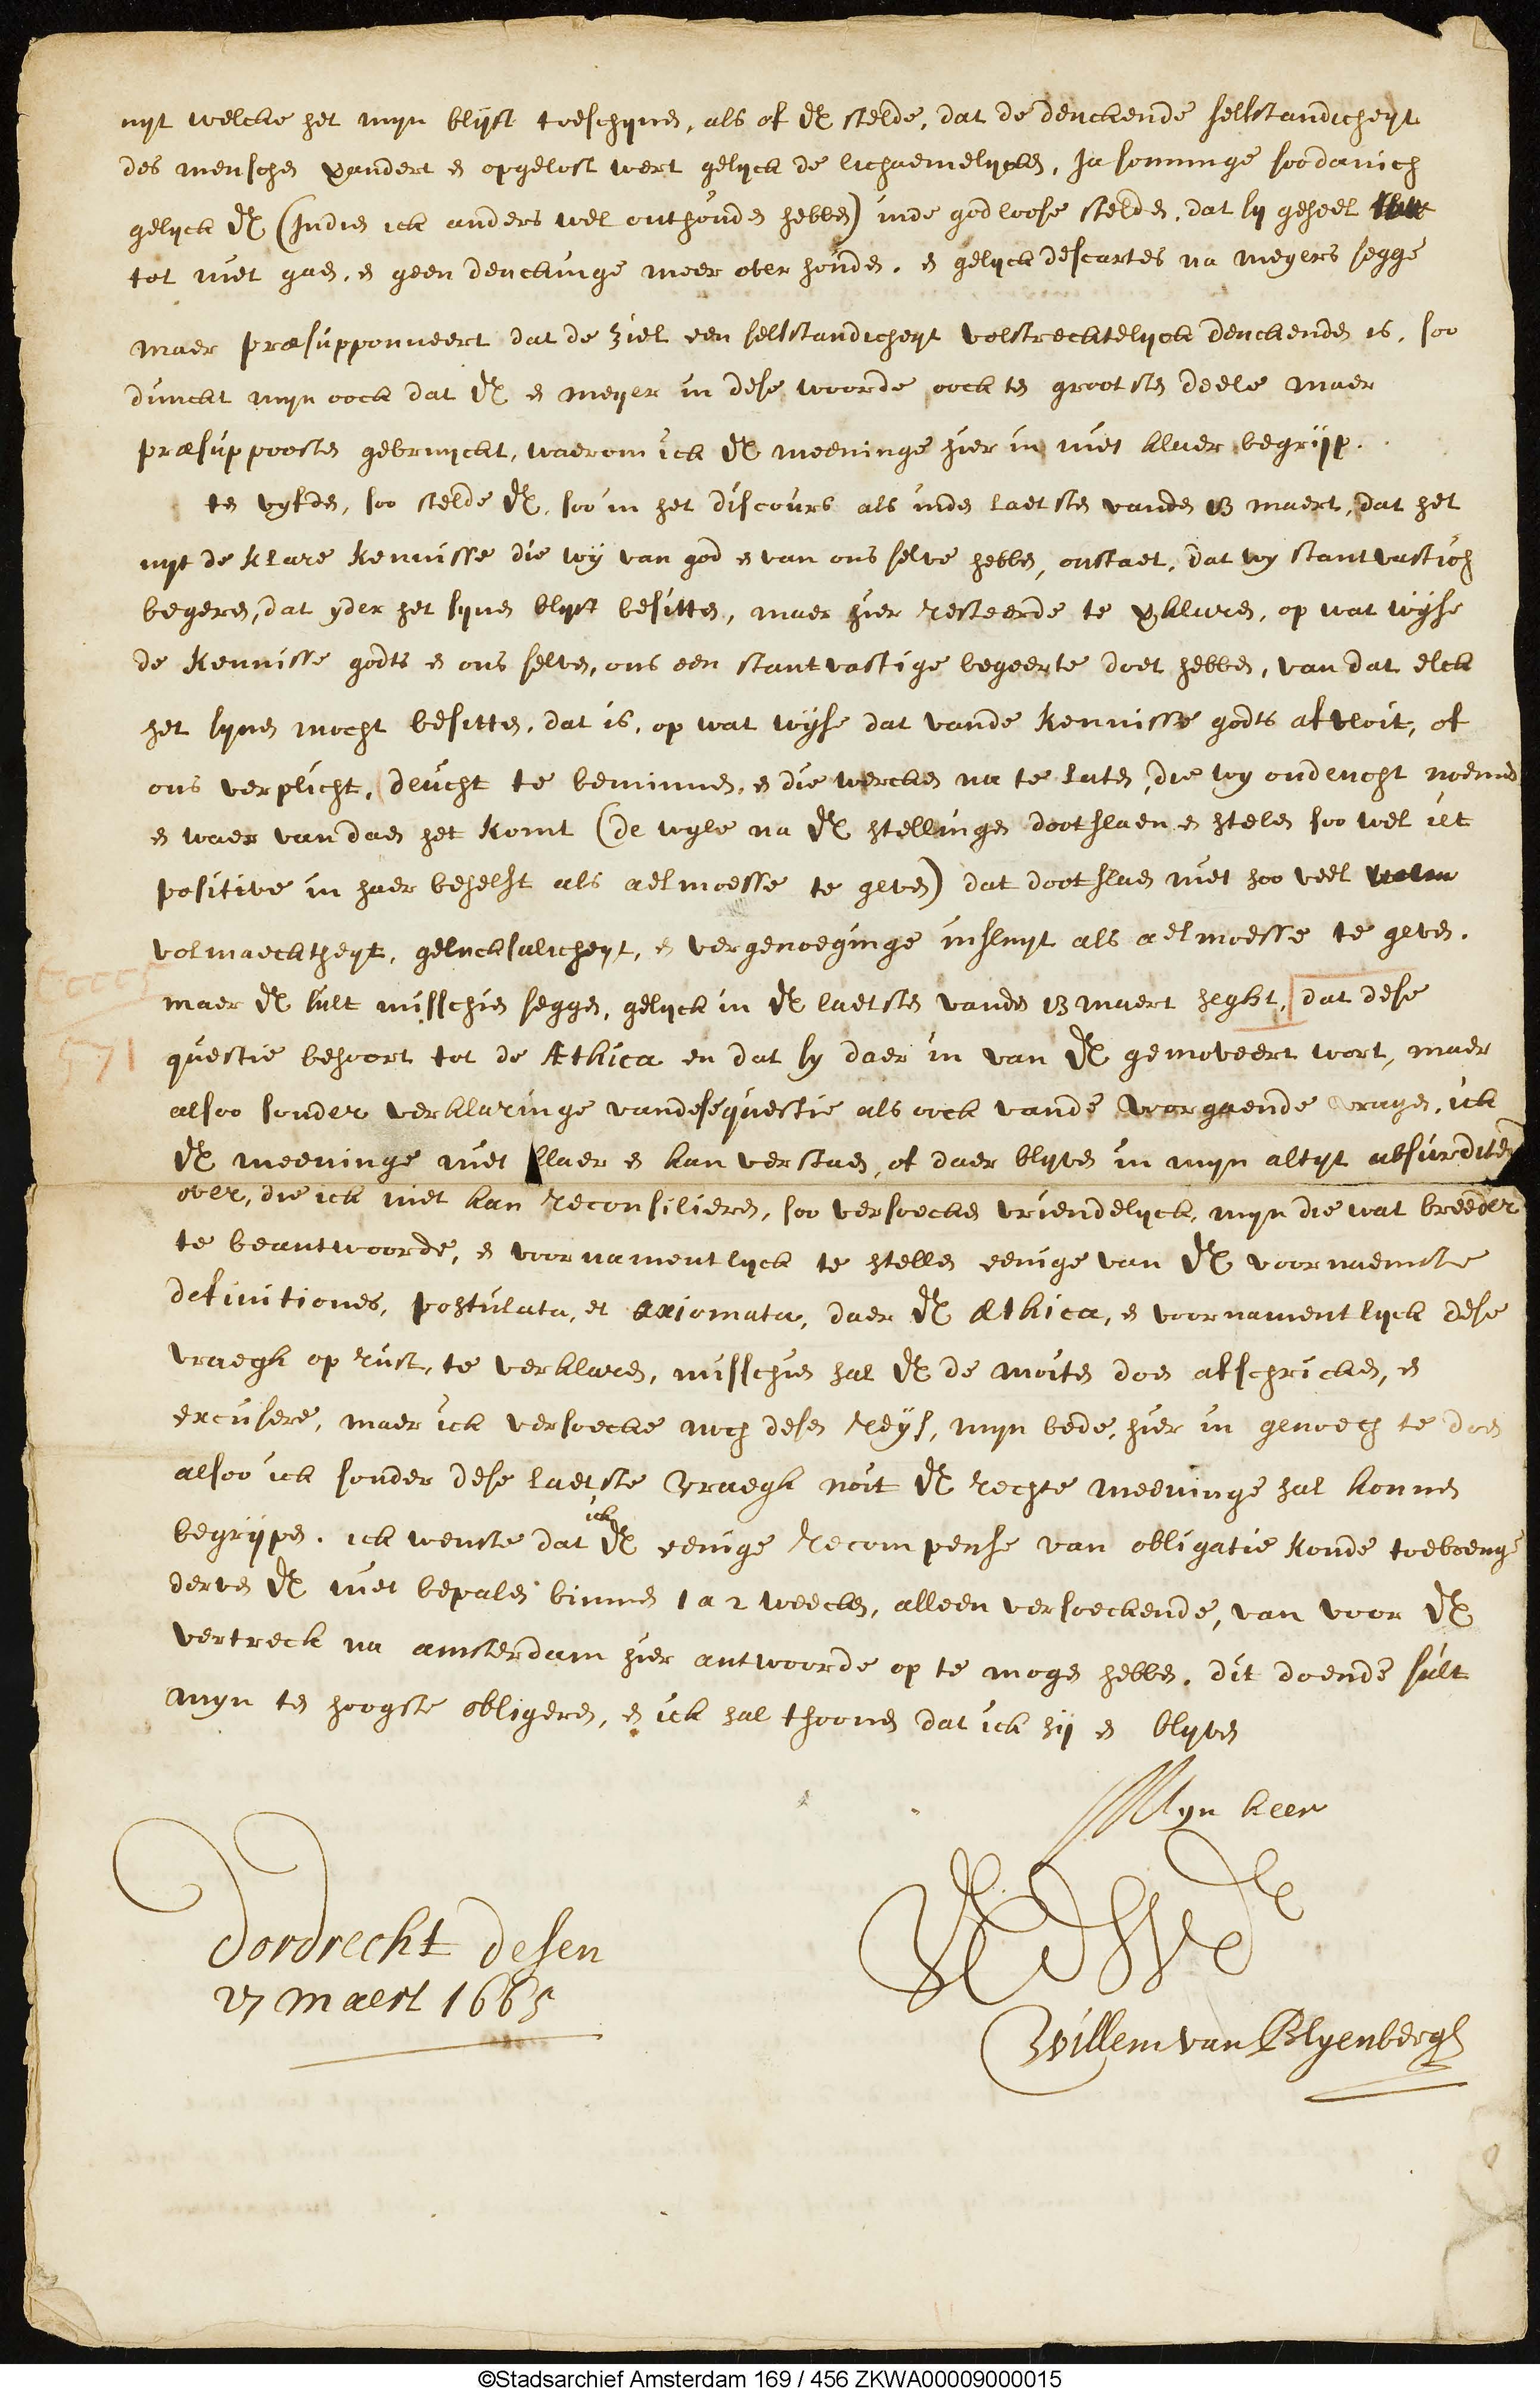 uyt welcke het myn blijft toeschynen, als of UE stelde, dat de denckende selfstandicheyt
des menschen verandert en opgelost wert gelyck de lichaemelycke, Ja somminge soodanich
gelyck UE (Indien ick anders wel onthouden hebbe) inde godloose stelden, dat sy geheel
tot niet gaen, en geen denckinge meer over houden. en gelyck descartes na meyers segge
maer præsupponneert dat de ziel een selfstandicheyt volstrecktelyck denckende is, soo
dunckt myn oock dat UE en meyer in dese woorde oock ten grootsten deele maer
præsuppoosten gebruyckt, waerom ick UE meeninge hier in niet klaer begrijp.
ten vyfden, soo stelde UE, soo in het discours als inden laetsten vanden 13 maert, dat het
uyt de klare kennisse die wy van god en van ons selve hebben, onstaet, dat wy stantvastich
begeren, dat yder het syne blyft besitten, maer hier resteerde te verklaren, op wat wyse
de kennisse godts en ons selven, ons een stantvastige begeerte doet hebben, van dat elck
het syne mocht besitten, dat is, op wat wyse dat vande kennisse godts afvloit, of
ons verplicht, deucht te beminnen, en die wercken na te laten, die wy ondeucht noemen
en waer van daen het komt (de wyle na UE stellingen dootslaen en stelen soo wel iet
positive in haer behelst als aelmoesse te geven) dat dootslaen niet soo veel
volmaecktheyt, gelucksalicheyt, en vergenoeginge insluyt als aelmoesse te geven.
maer UE sult misschien seggen, gelyck in UE laetsten vanden 13 maert seght, dat dese
571
questie behoort tot de Æthica en dat sy daer in van UE gemoveert wort, maer
alsoo sonder verklaringe van dese questie als oock vande voorgaende vragen, ick
UE meeninge niet klaer en kan verstaen, of daer blyven in myn altyt absurditen
over, die ick niet kan reconsilieren, soo versoecke vriendelyck, myn die wat breeder
te beantwoorde, en voornamentlyck te stellen eenige van UE voornaemste
definitiones, postulata, et axiomata, daer UE Æthica, en voornamentlyck dese
vraegh op rust, te verklaren, misschien sal UE de moiten doen afschricken, en
excusere, maer ick versoecke noch desen reys, myn bede, hier in genoech te doen
alsoo ick sonder dese laetste vraegh noit UE rechte meeninge sal konnen
begrijpen. ick wenste dat ick UE eenige recompense van obligatie konde toebrenge
derve UE niet bepalen binnen 1 a 2 weecken, alleen versoeckende, van voor UE
vertreck na amsterdam hier antwoorde op te mogen hebben. dit doende sult
myn ten hoogste obligeren, en ick sal thoonen dat ick sy en blyve
Myn heer
Dordrecht desen
27 maert 1665
Willem van Blyenbergh
©Stadsarchief Amsterdam 169 / 456 ZKWA00009000015